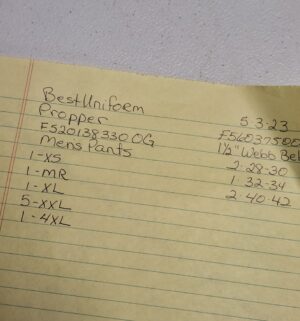 Best Uniform
Propper
F520138330 OG
Mens Pants
1-XS
1-MR
1-XL
5-XXL
1-4XL
5-3-23
1½" Webb Bel
2-28-30
1-32-34
2-40-42